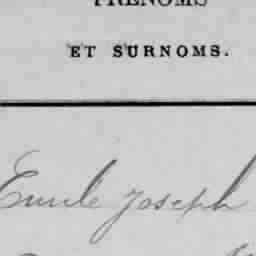 PRENOMS
ET SURNOMS.
Emile Joseph